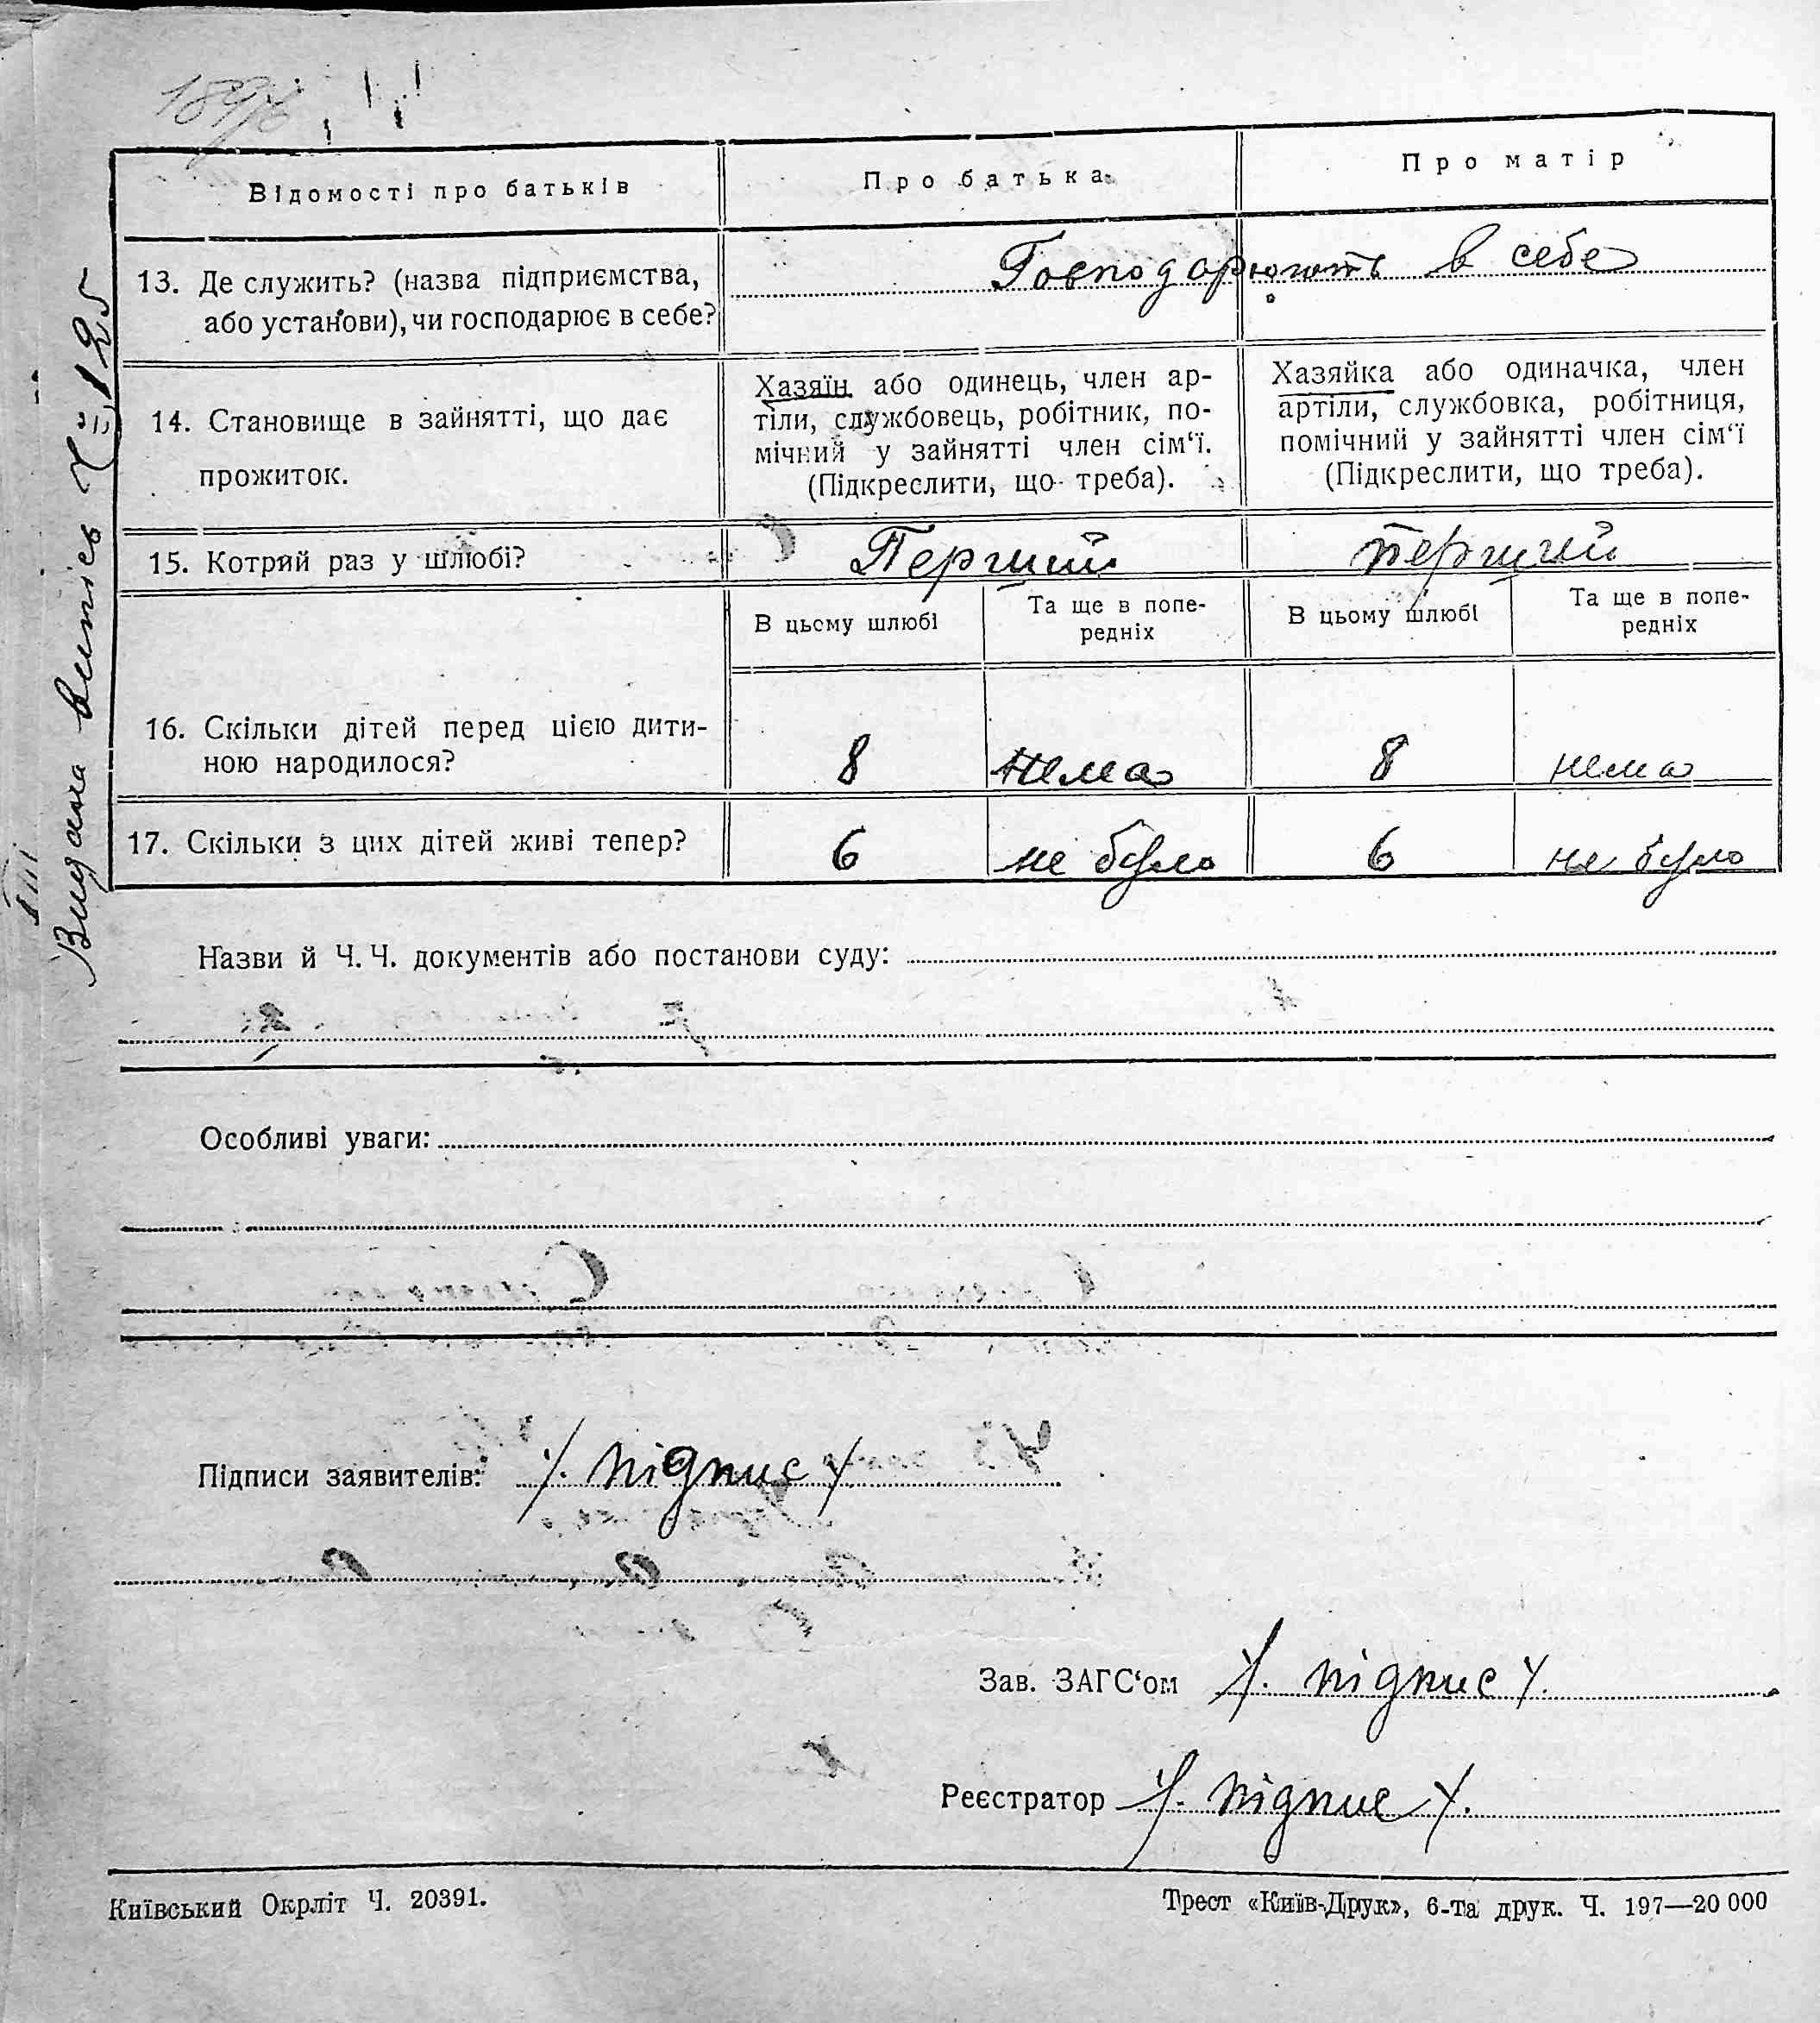 Відомості про батьків
Про батька
Про матір
13. Де служить? (назва підприємства,
або установи), чи господарює в себе?
Господарюють в себе
14. Становище в зайнятті, що дає
прожиток.
Хазяїн або одинець, член ар-
тіли, службовець, робітник, по-
мічний у зайнятті член сім‘ї.
(Підкреслити, що треба).
Хазяйка або одиначка, член
артіли, службовка, робітниця,
помічний у зайнятті член сім‘ї
(Підкреслити, що треба).
15. Котрий раз у шлюбі?
Перший
перший
В цьому шлюбі
Та ще в попе-
редніх
В цьому шлюбі
Та ще в попе-
редніх
16. Скільки дітей перед цією дити-
ною народилося?
8 нема 8 нема
17. Скільки з цих дітей живі тепер?
6 не було 6 не було
Видана випись Ч 125
Назви й Ч. Ч. документів або постанови суду:
Особливі уваги:
Підписи заявителів: /. підпис /
Зав. ЗАГС‘ом /. підпис /.
Реєстратор /. підпис /.
Київський Окрліт Ч. 20391.
Трест «Київ-Друк», 6-та друк. Ч. 197—20 000